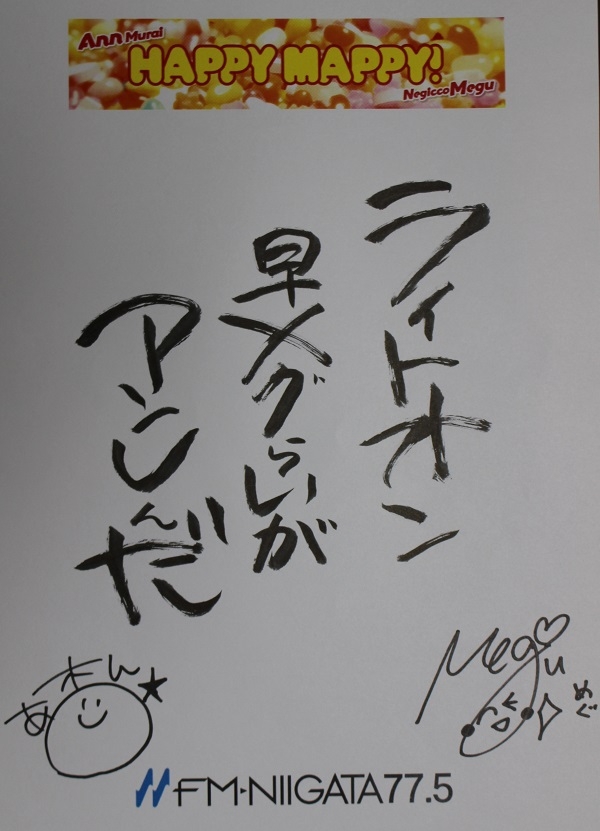 Ann Murai
HAPPY MAPPY!
NegiccoMegu
ライトオン
早メグらいが
アンしんだ
Megu
めぐ
FM-NIIGATA77.5